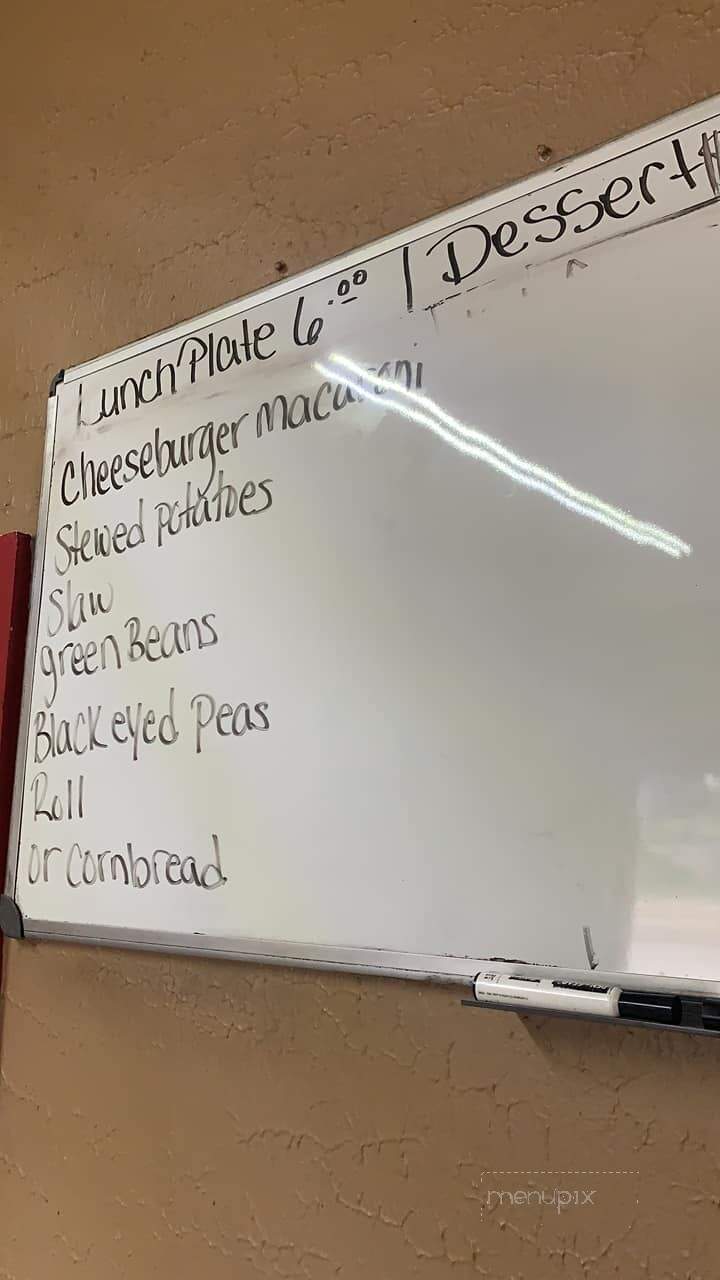 Lunch Plate 6.00 | Dessert
Cheeseburger macaroni
Stewed potatoes
Slaw
green Beans
Black eyed Peas
Roll
or cornbread
menupix